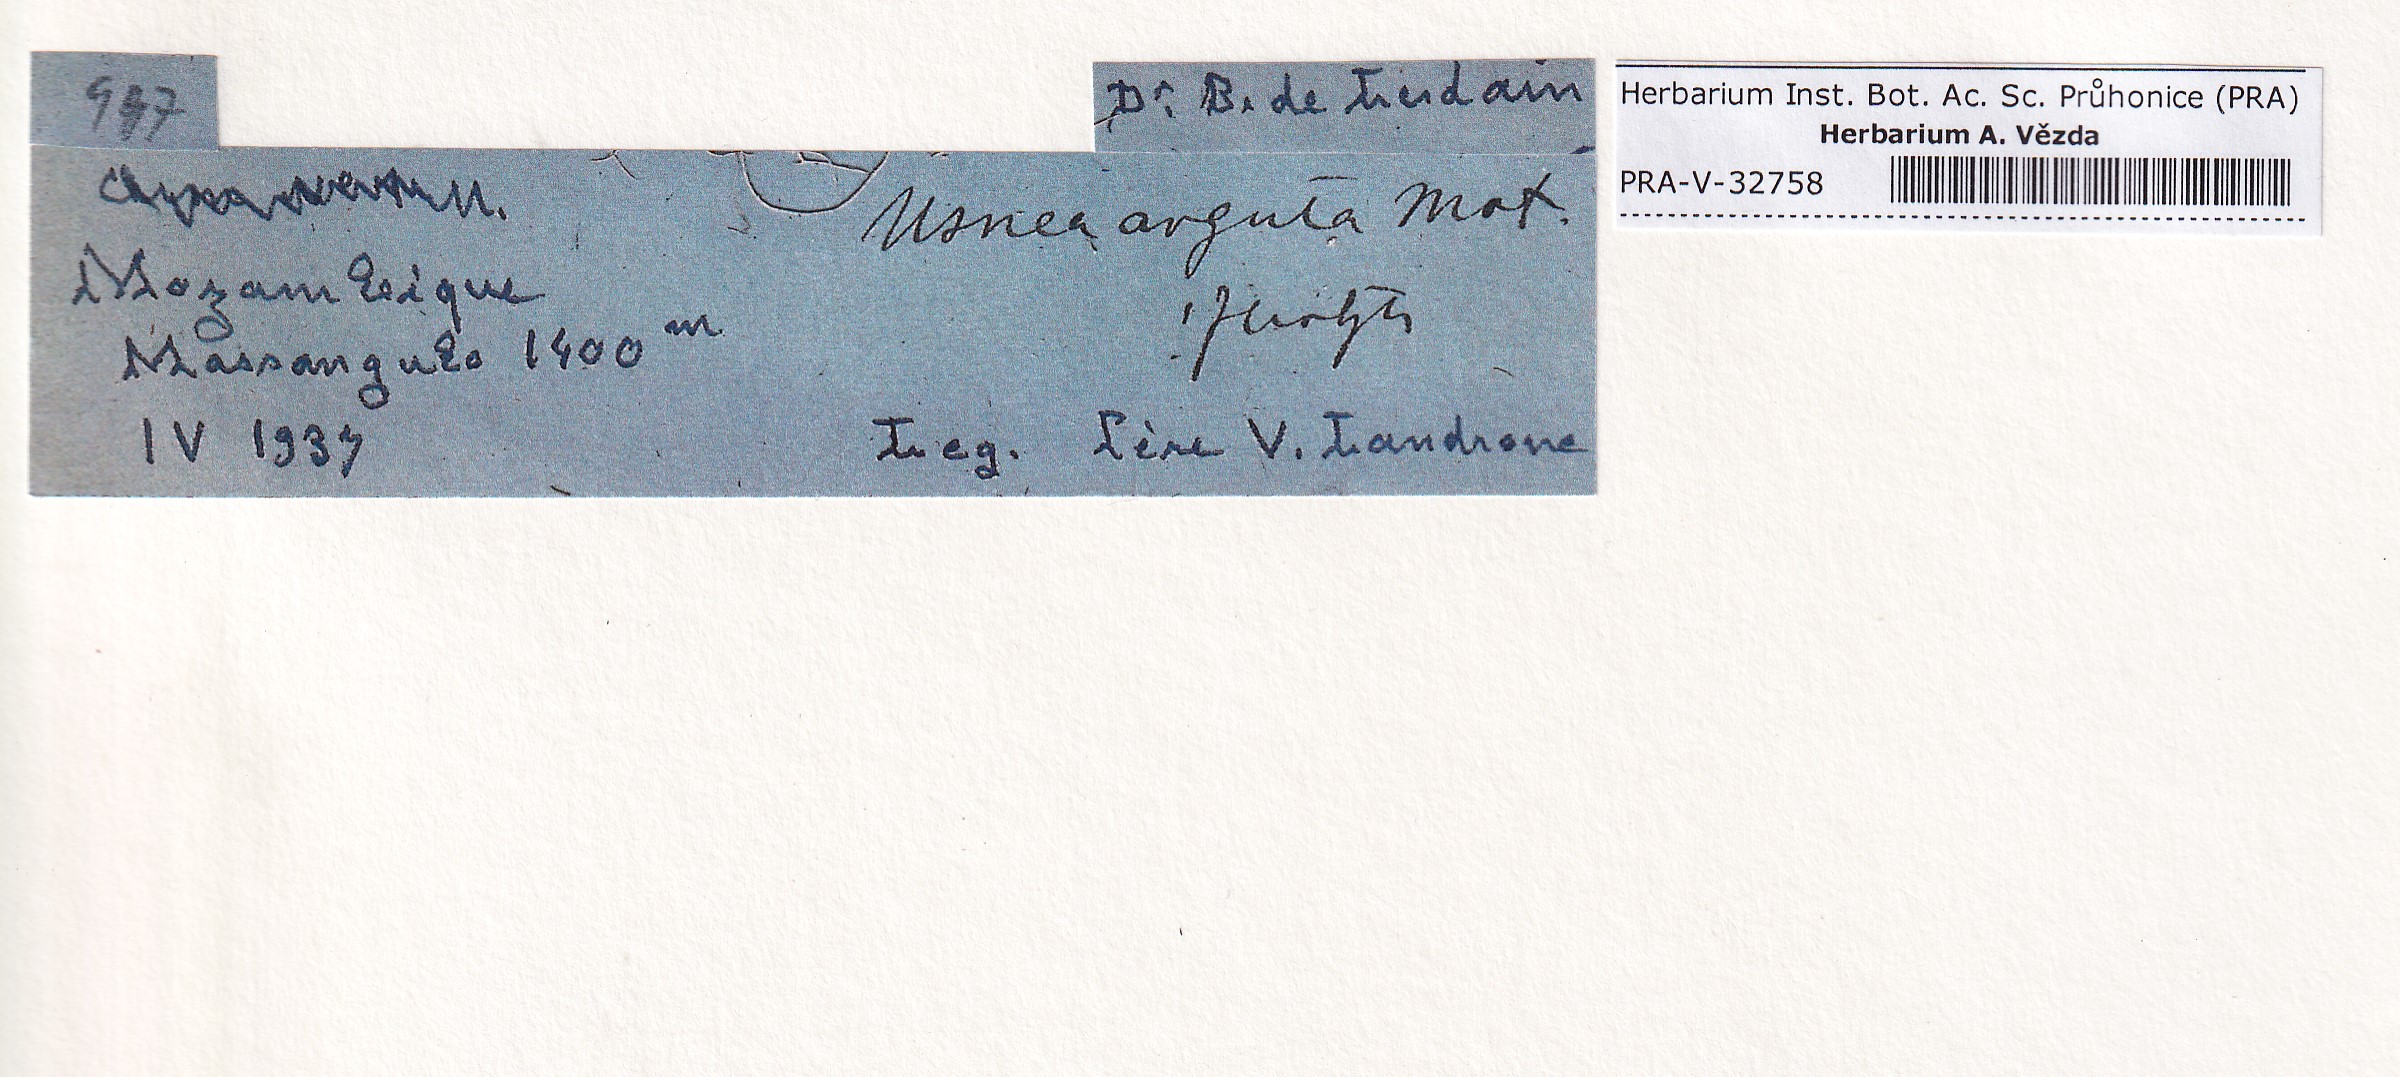 Dr. B. de Lesdain
Herbarium Inst. Bot. Ac. Sc. Průhonice (PRA)
Herbarium A. Vězda
PRA-V-32758
Usnea arguta Mot.
Mozambique
Massangulo 1400 m
IV 1937
Leg. Père V. Landrone